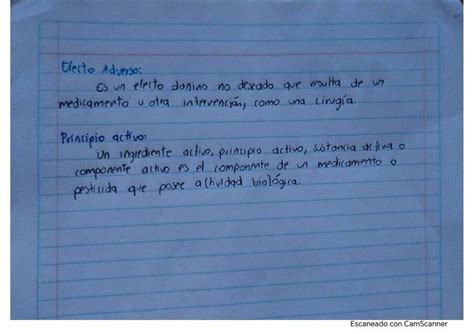 Efecto Adverso:
Es un efecto danino no deseado que resulta de un
medicamento u otra intervención, como una cirugía.
Principio activo:
Un ingrediente activo, principio activo, sustancia activa o
componente activo es el componente de un medicamento o
pesticida que posee actividad biológica.
Escaneado con CamScanner